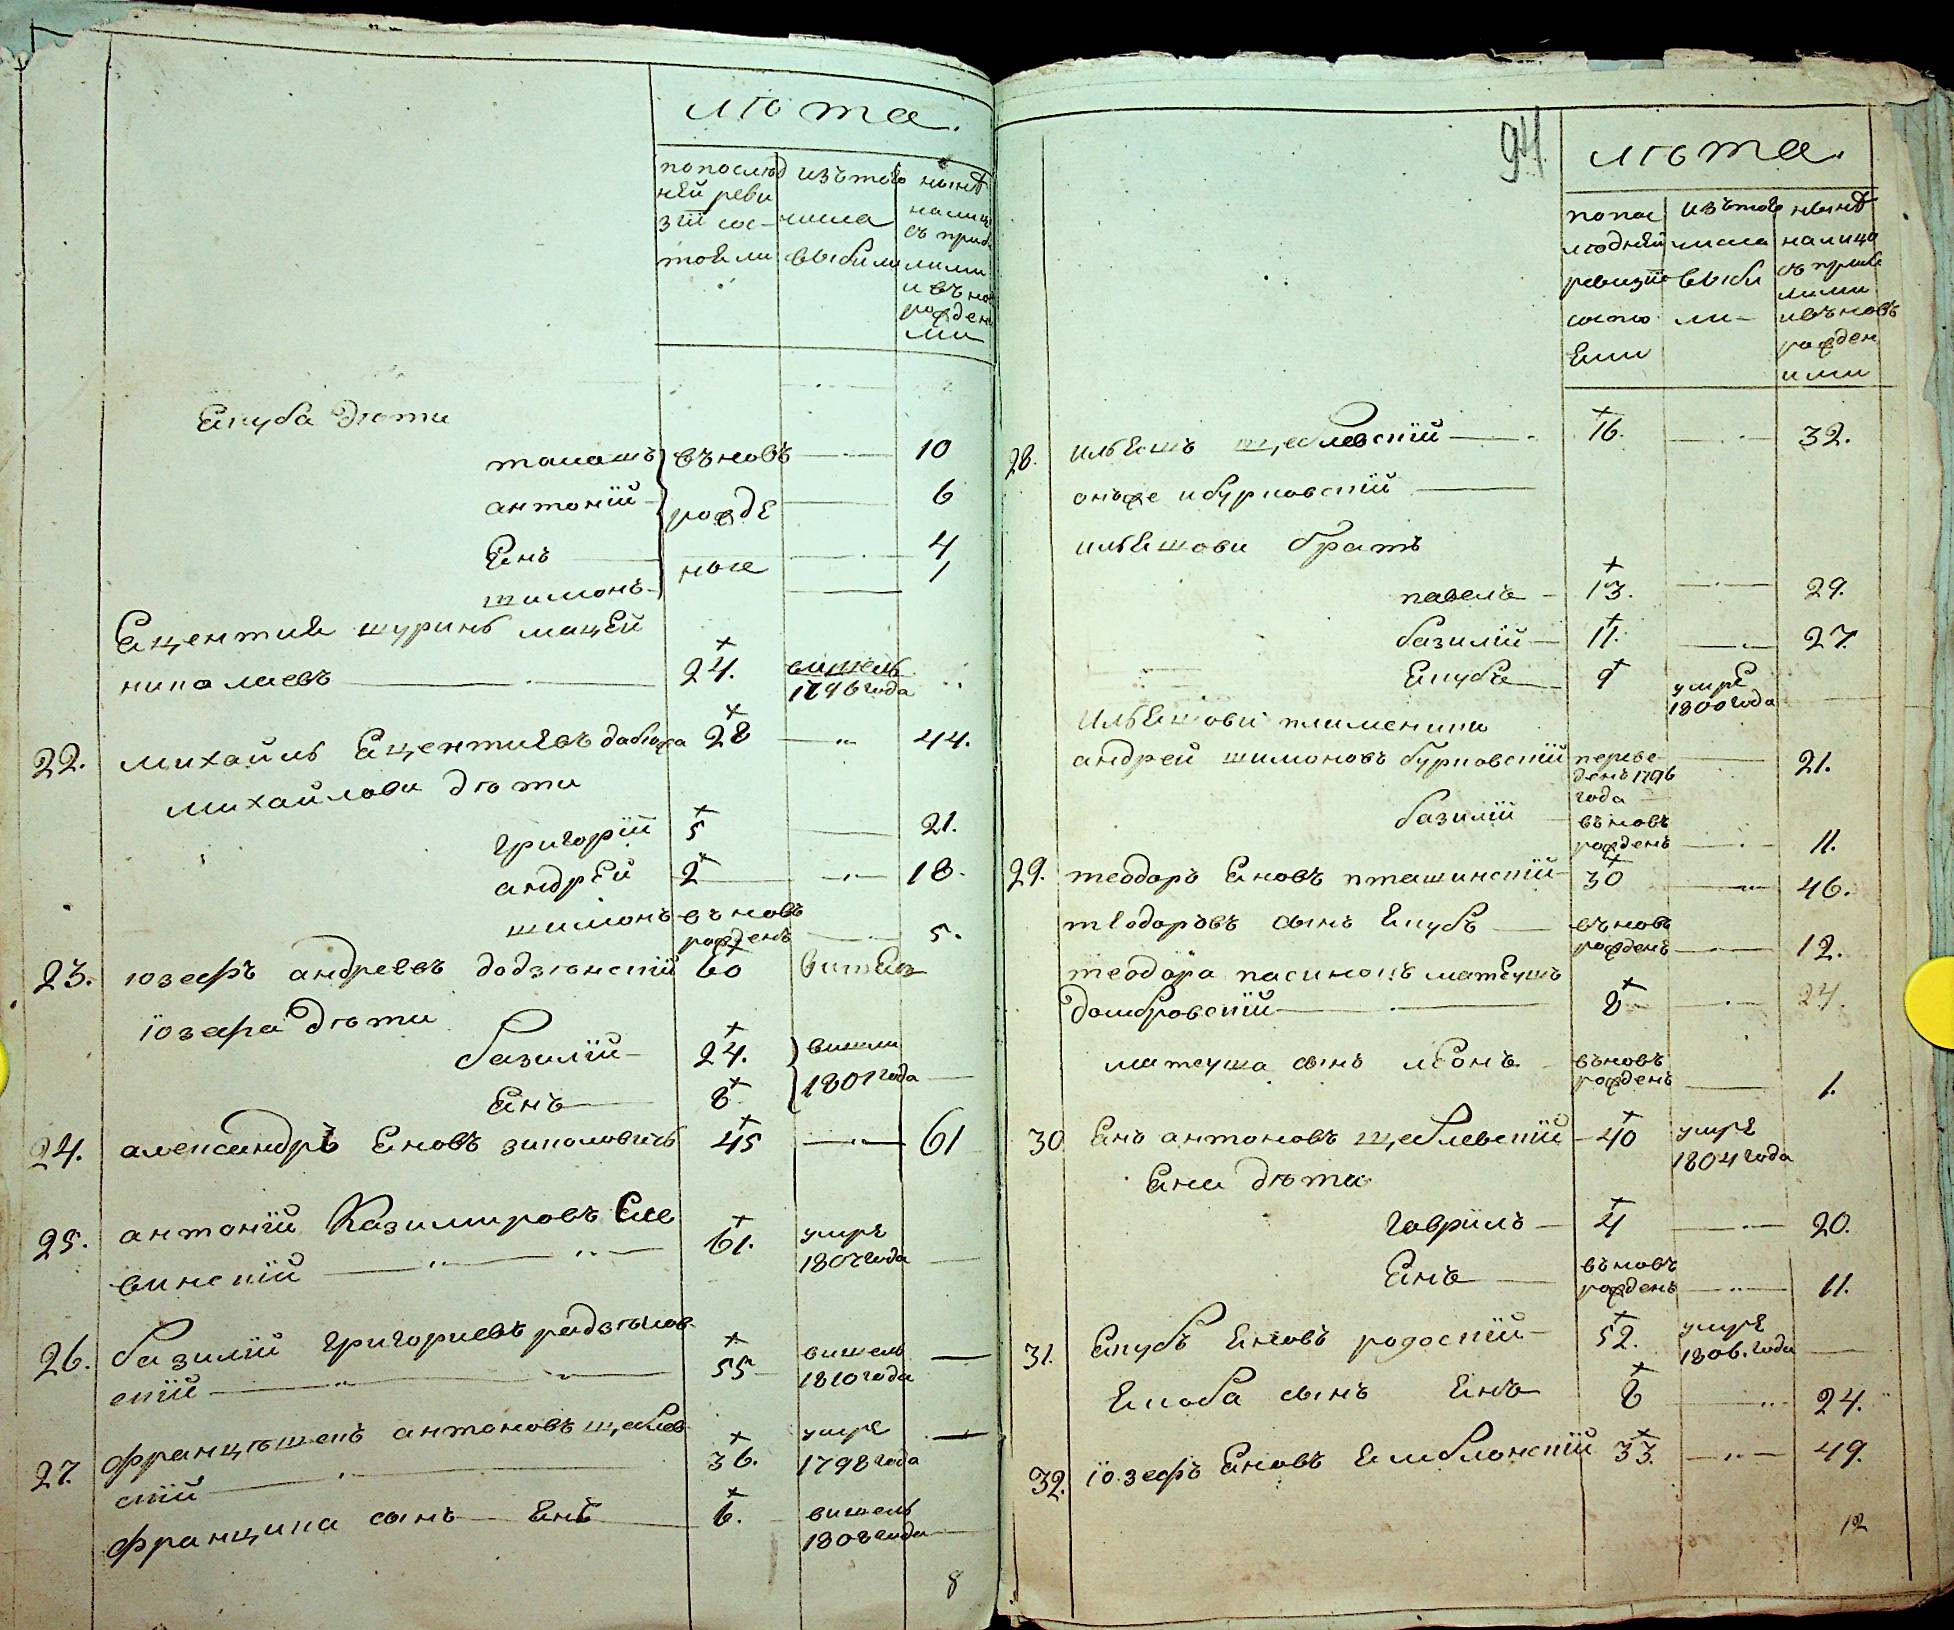 лѣта.
попослѣд изътого нынѣ
ней реви налицо
зіи сос- числа съ приб.
тояли выбыли лыми
и въно
рожден
ми
Якуба дѣти
томашъ въновь — 10
антоній рожде — 6
Янъ — 4
шимонъ ные — 1
Яцентия шуринъ мацей
николаевъ — 24. вишелъ
1796 года
22. михайлъ Яцентиевъ 28 — 44.
михайлови дѣти
григорій 5 — 21.
андрей 2 — 18.
шимонъ въновь
рожденъ — 5.
23. юзефъ андреевъ 60 вишелъ
іозефа дѣти
базилій — 24. вишли
1801 года —
Янъ — 8
24. александръ Яновъ 45 — 61
25. антоній Казимировъ Сле
винскій — 61. умре
1807 года —
26. базилій григориевъ
скій — 55 — вишелъ
1810 года —
27. францѣшекъ антоновъ щеблев
скій — 36. умре
1798 года —
францишка сынъ Янъ 6. вишелъ
1808 года —
8
94
лѣта.
попос изътого нынѣ
лѣдней числа налицо
ревизіи выбы съ прибы
лыми
состо ли- ивъновь
яли рожден
ными
28. ильяшъ щеблевскій — 16. — 32.
онъже ибурковскій —
ильяшови братъ
павелъ — 13. — 29.
базилій — 11. — 27.
Якубъ — 9 умре
1800 года —
Ильяшови племеники
андрей шимоновъ бурковскій переве-
денъ 1796
года — 21.
базилій въновь
рожденъ — 11.
29. теодоръ Яновъ пташинскій 30 — 46.
теодоровъ сынъ Якубъ — въновь
рожденъ — 12.
теодора пасинокъ матеушъ
домбровскій — 8 — 24.
матеуша сынъ леонъ — въновь
рожденъ — 1.
30. Янъ антоновъ щеблевскій — 40 умре
1804 года
Яна дѣти
гаврилъ — 4 — 20.
Янъ — въновь
рожденъ — 11.
31. Якубъ Яновъ родоскій — 52. умре
1806. года —
Якоба сынъ Янъ 8 — 24.
32. іозефъ Яновъ Яблонскій 33. — 49.
12